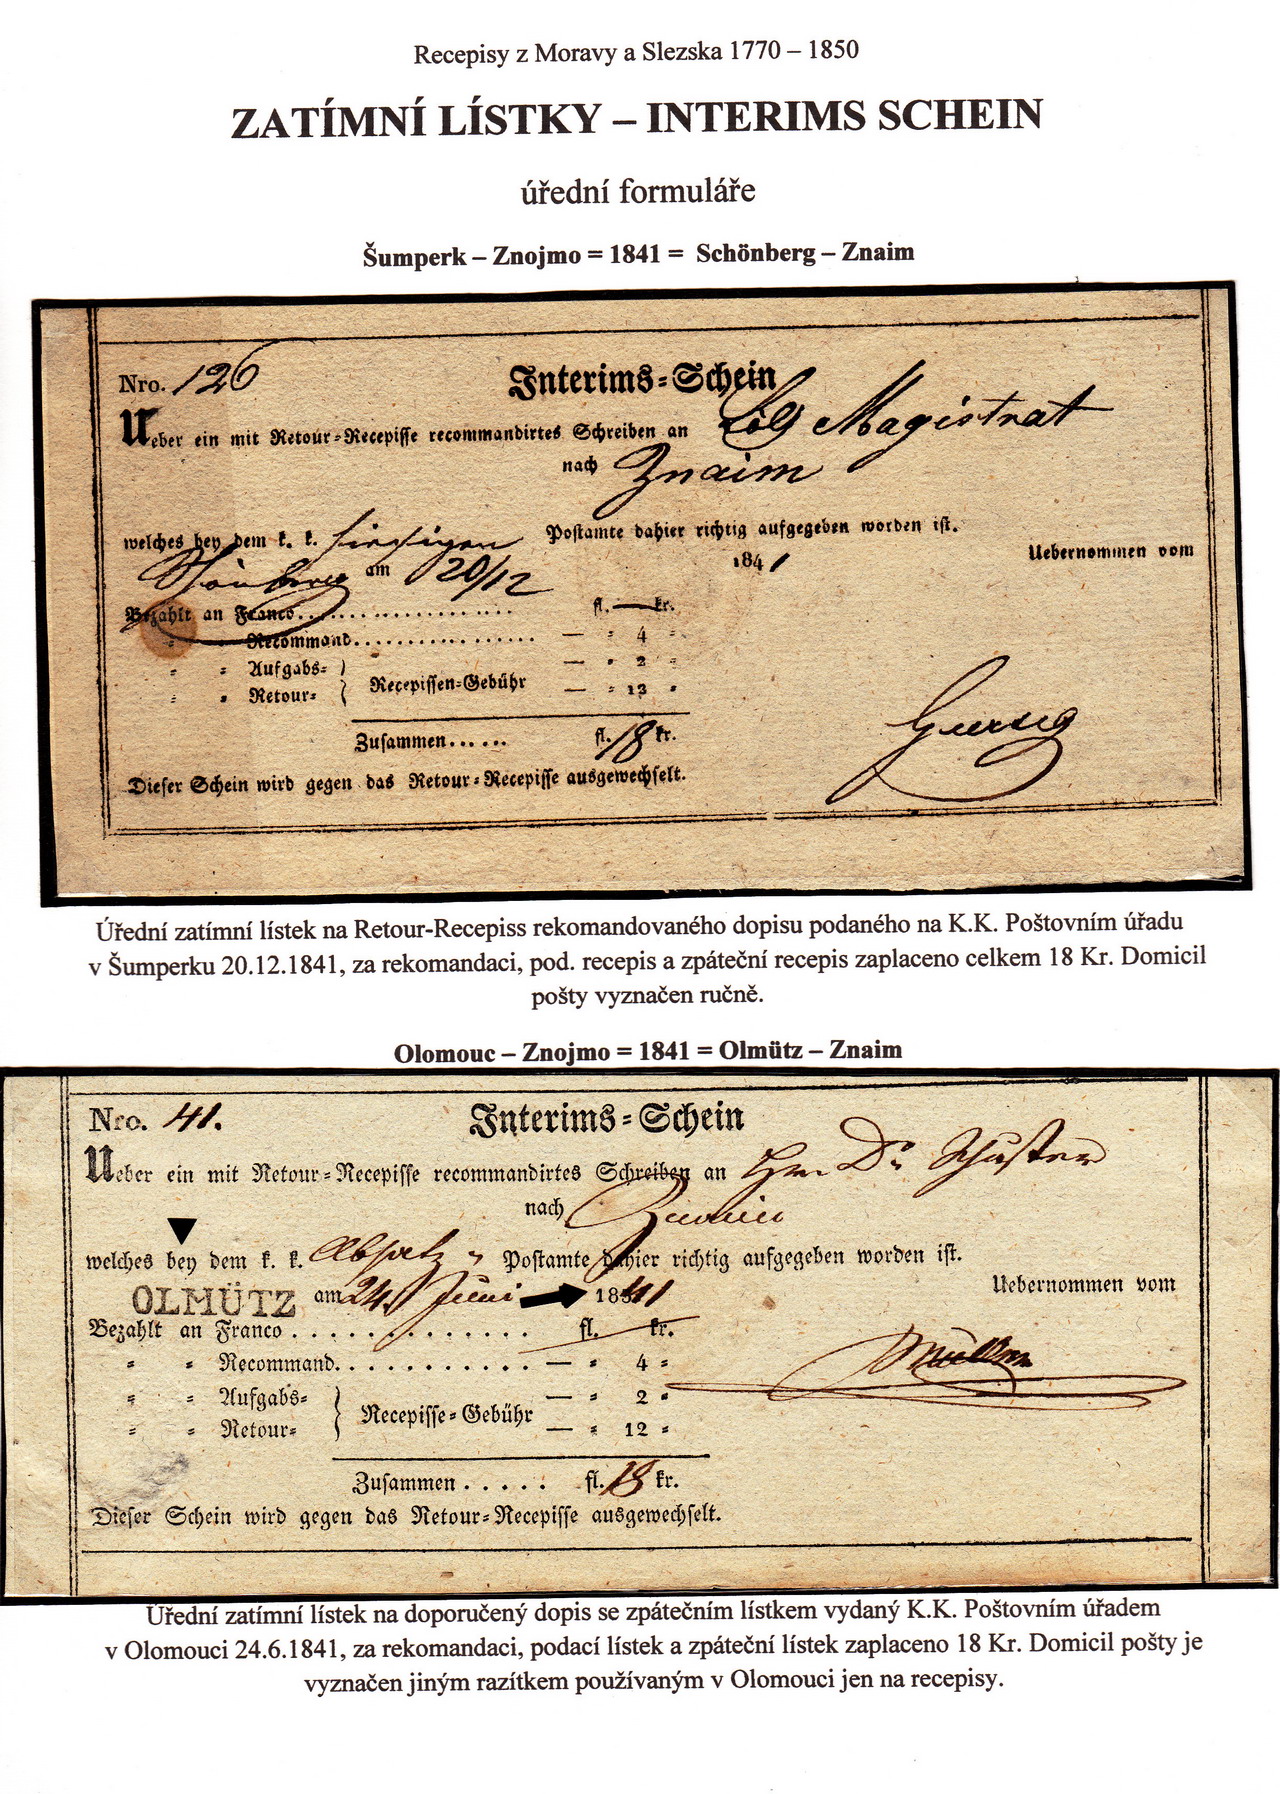 Recepisy z Moravy a Slezska 1770 – 1850
ZATÍMNÍ LÍSTKY – INTERIMS SCHEIN
úřední formuláře
Šumperk – Znojmo = 1841 = Schönberg – Znaim
Nro. 126
Interims-Schein
Ueber ein mit Retour-Recepisse recommandirtes Schreiben an Löbl Magistrat
nach Znaim
welches bey dem k. k. hiesigen Postamte dahier richtig aufgegeben worden ist.
Schönberg am 20/12 1841
Uebernommen vom
Bezahlt an Franco.................. fl. — kr.
" " Recommand............... — " 4 "
" " Aufgabs- } — " 2 "
" " Retour- } Recepissen-Gebühr — " 12 "
Zusammen...... fl. 18 kr.
Dieser Schein wird gegen das Retour-Recepisse ausgewechselt.
Úřední zatímní lístek na Retour-Recepiss rekomandovaného dopisu podaného na K.K. Poštovním úřadu
v Šumperku 20.12.1841, za rekomandaci, pod. recepis a zpáteční recepis zaplaceno celkem 18 Kr. Domicil
pošty vyznačen ručně.
Olomouc – Znojmo = 1841 = Olmütz – Znaim
Nro. 41.
Interims-Schein
Ueber ein mit Retour-Recepisse recommandirtes Schreiben an Hrn Dr Schuster
nach Znaim
welches bey dem k. k. Absatz Postamte dahier richtig aufgegeben worden ist.
OLMÜTZ am 24. Juni 1841
Uebernommen vom
Bezahlt an Franco . . . . . . . . . . . . fl. kr.
" " Recommand. . . . . . . . . . — " 4 "
" " Aufgabs- } — " 2 "
" " Retour- } Recepisse-Gebühr — " 12 "
Zusammen . . . . . fl. 18 kr.
Dieser Schein wird gegen das Retour-Recepisse ausgewechselt.
Müller
Úřední zatímní lístek na doporučený dopis se zpátečním lístkem vydaný K.K. Poštovním úřadem
v Olomouci 24.6.1841, za rekomandaci, podací lístek a zpáteční lístek zaplaceno 18 Kr. Domicil pošty je
vyznačen jiným razítkem používaným v Olomouci jen na recepisy.